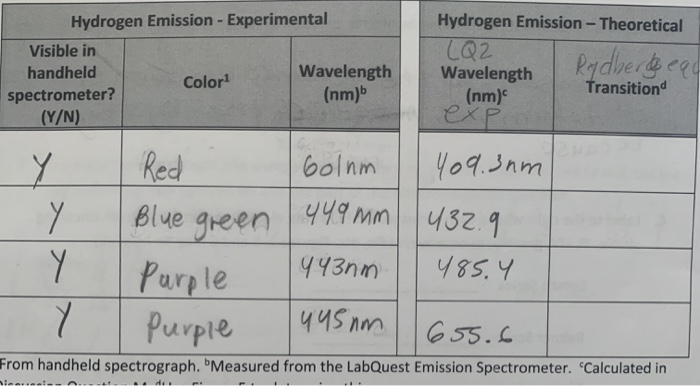 Hydrogen Emission - Experimental
Hydrogen Emission – Theoretical
Visible in handheld spectrometer? (Y/N)
Color¹
Wavelength (nm)ᵇ
LQ2
Wavelength (nm)ᶜ
exp
Rydbergs equ
Transitionᵈ
Y Red 601nm 409.3nm
Y Blue green 449 mm 432.9
Y Purple 443nm 485.4
Y Purple 445 nm 655.6
From handheld spectrograph. ᵇMeasured from the LabQuest Emission Spectrometer. ᶜCalculated in